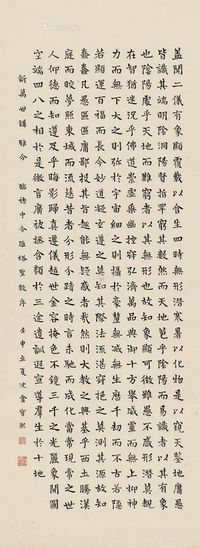 蓋聞二儀有象顯覆載以含生四時無形潛寒暑以化物是以窺天鑒地庸愚
皆識其端明陰洞陽賢哲罕窮其數然而天地苞乎陰陽而易識者以其有象
也陰陽處乎天地而難窮者以其無形也故知象顯可徵雖愚不惑形潛莫覩
在智猶迷況乎佛道崇虛乘幽控寂弘濟萬品典御十方舉威靈而無上抑神
力而無下大之則彌於宇宙細之則攝於豪釐無滅無生歷千劫而不古若隱
若顯運百福而長今妙道凝玄遵之莫知其際法流湛寂挹之莫測其源故知
蠢蠢凡愚區區庸鄙投其旨趣能無疑惑者哉然則大教之興基乎西土騰漢
庭而皎夢照東域而流慈昔者分形分跡之時言未馳而成化當常現常之世
人仰德而知遵及乎晦影歸真遷儀越世金容掩色不鏡三千之光麗象開圖
空端四八之相於是微言廣被拯含類於三途遺訓遐宣導群生於十地
新萬世講雅令 臨褚中令雁塔聖教序 壬申立夏沈盦寶熙